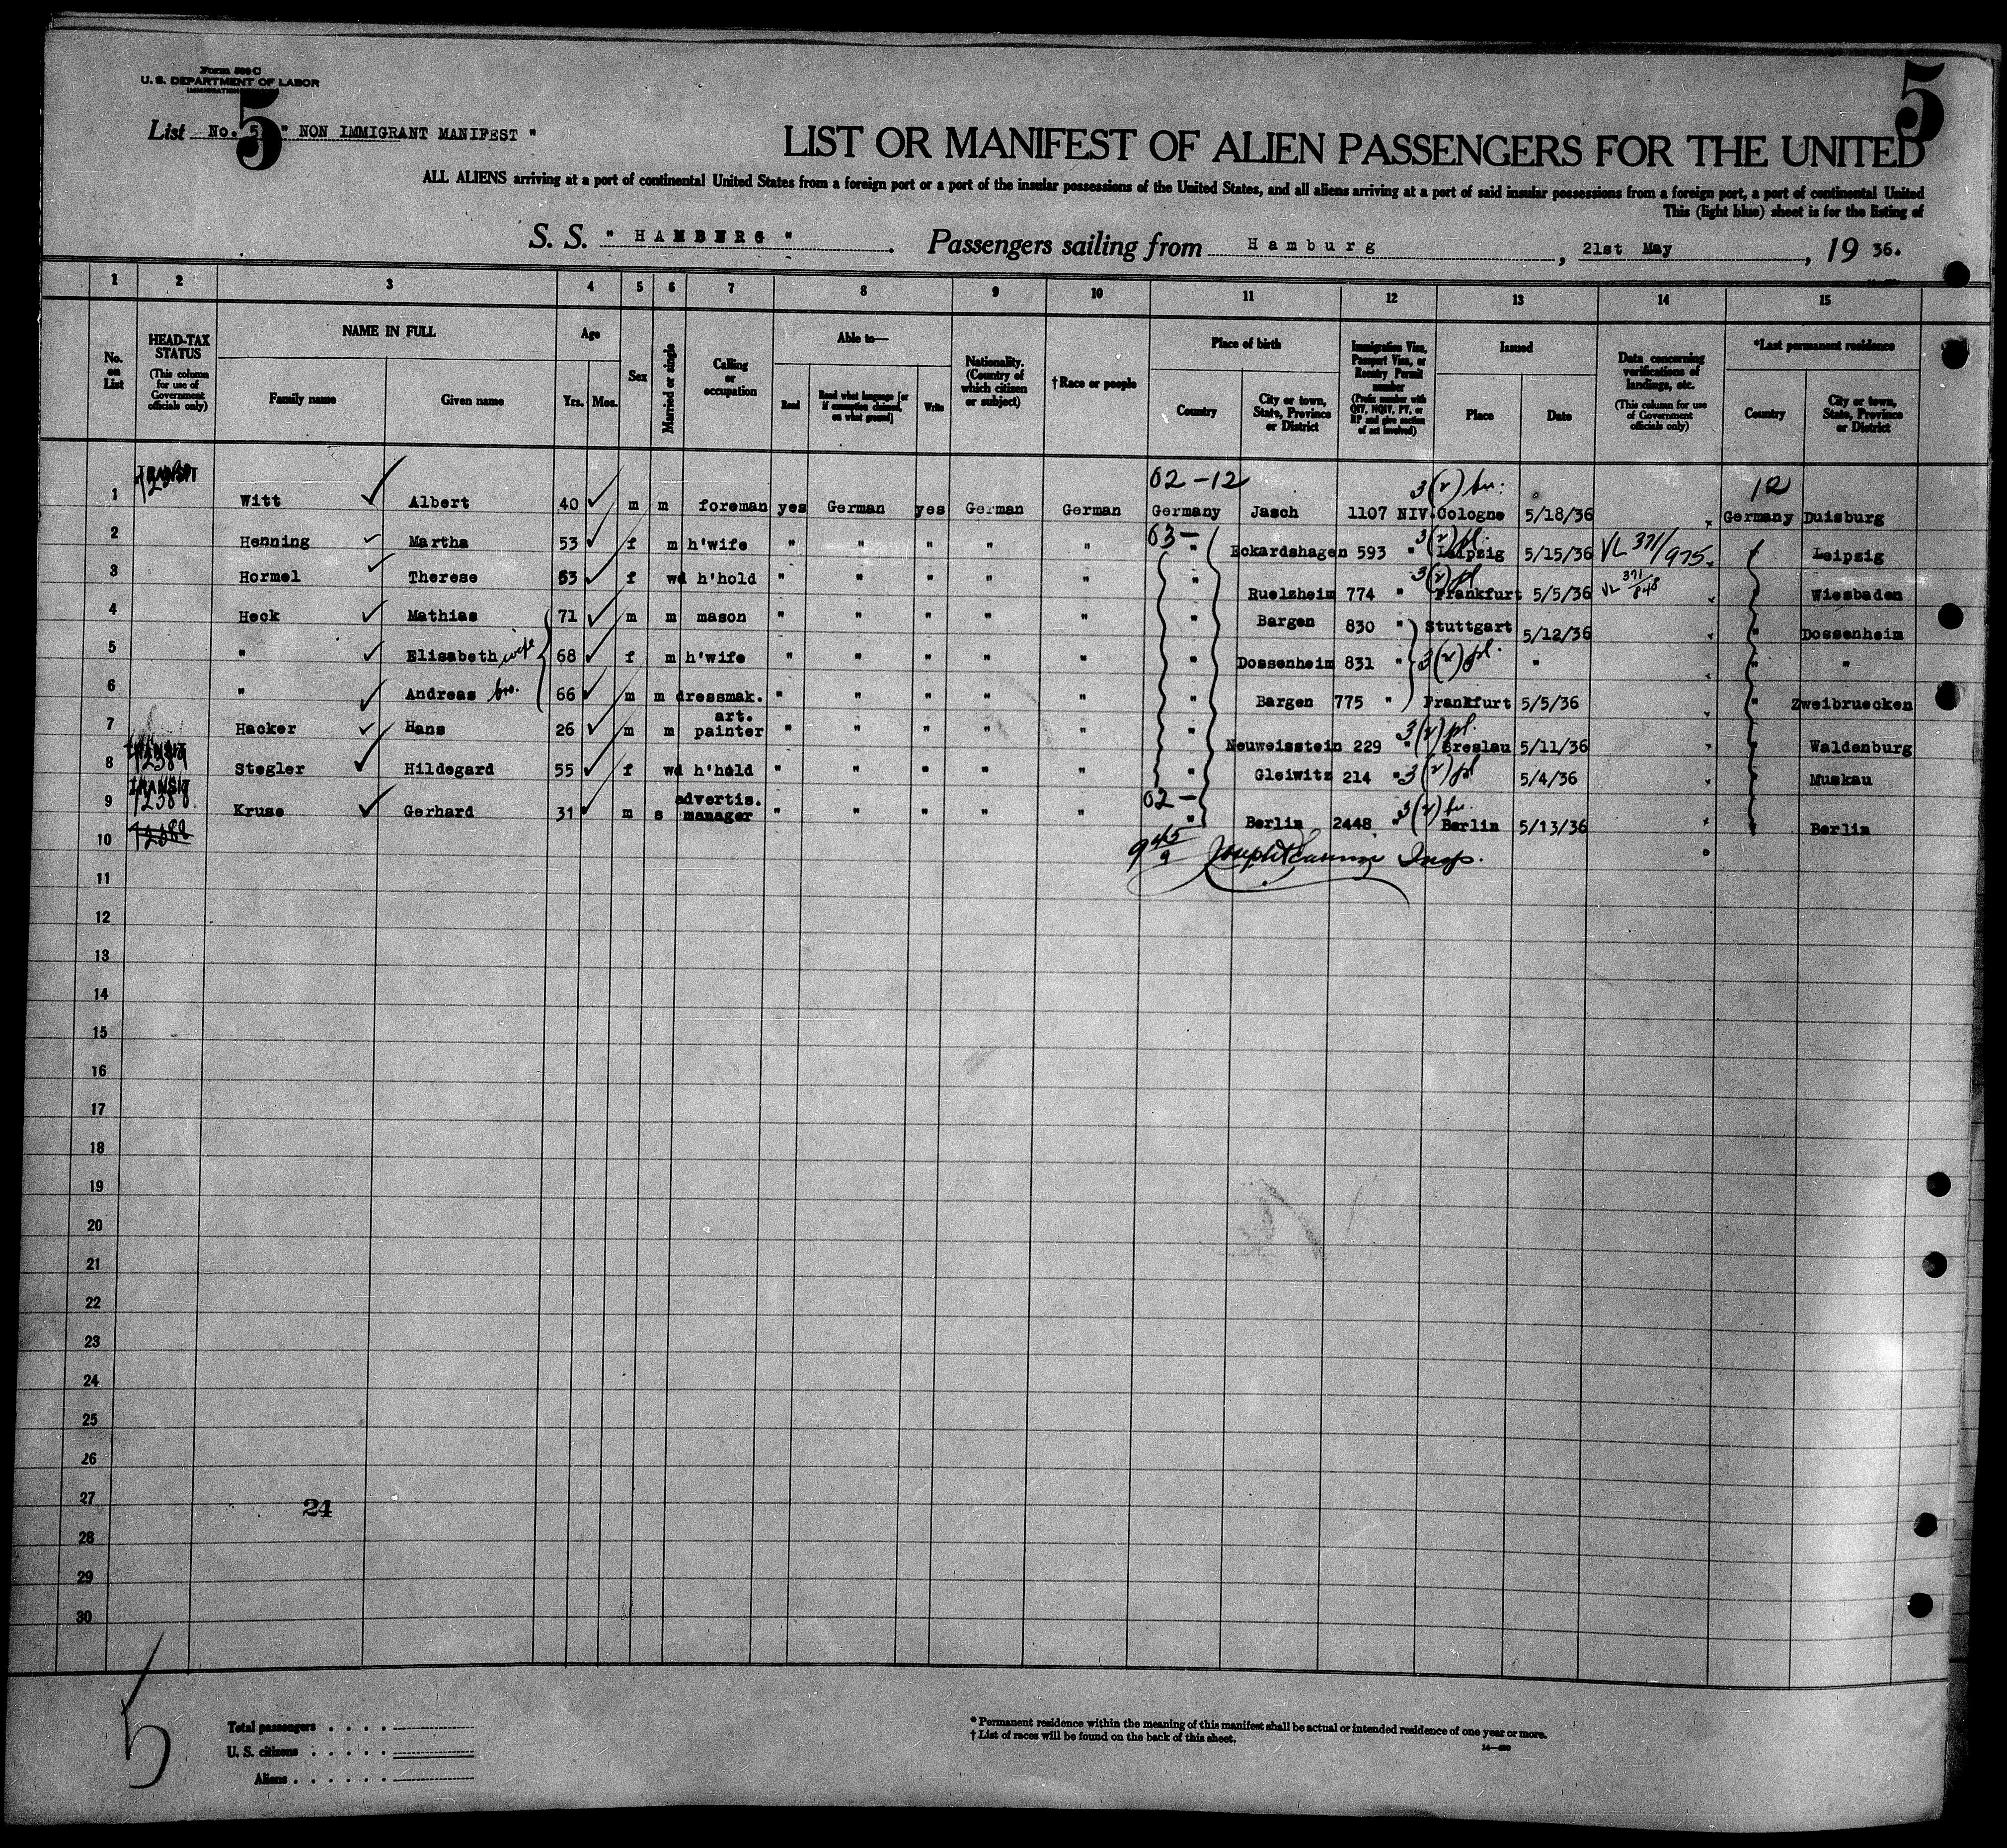 Form 500 C
U. S. DEPARTMENT OF LABOR
5 5
List No. 5 " NON IMMIGRANT MANIFEST "
LIST OR MANIFEST OF ALIEN PASSENGERS FOR THE UNITED
ALL ALIENS arriving at a port of continental United States from a foreign port or a port of the insular possessions of the United States, and all aliens arriving at a port of said insular possessions from a foreign port, a port of continental United
This (light blue) sheet is for the listing of
S. S. " HAMBURG " . Passengers sailing from Hamburg , 21st May , 19 36.
1 2 3 4 5 6 7 8 9 10 11 12 13 14 15
No. on List
HEAD-TAX STATUS (This column for use of Government officials only)
NAME IN FULL Family name Given name
Age Yrs. Mos.
Sex
Married or single
Calling or occupation
Able to— Read Read what language [or if exemption claimed, on what ground] Write
Nationality. (Country of which citizen or subject)
†Race or people
Place of birth Country City or town, State, Province or District
Immigration Visa, Passport Visa, or Reentry Permit number (Prefix number with QIV, NQIV, PV, or RP and give section of act involved)
Issued Place Date
Data concerning verifications of landings, etc. (This column for use of Government officials only)
*Last permanent residence Country City or town, State, Province or District
TRANSIT 02-12 3(2) 12
1 Witt Albert 40 m m foreman yes German yes German German Germany Jasch 1107 NIV Cologne 5/18/36 Germany Duisburg
03- 3(2) pl.
2 Henning Martha 53 f m h'wife " " " " " " Eckardshagen 593 " Leipzig 5/15/36 VL 371/975 " Leipzig
3(2) pl
3 Hormel Therese 53 f wd h'hold " " " " " " Ruelzheim 774 " Frankfurt 5/5/36 VL 371/848 " Wiesbaden
4 Heck Mathias 71 m m mason " " " " " " Bargen 830 " Stuttgart 5/12/36 " Dossenheim
5 " Elisabeth wife 68 f m h'wife " " " " " " Dossenheim 831 " 3(2) pl. " " "
6 " Andreas bro. 66 m m dressmak. " " " " " " Bargen 775 " Frankfurt 5/5/36 " Zweibruecken
7 Hacker Hans 26 m m art. painter " " " " " " Neuweisstein 229 " 3(2) pl. Breslau 5/11/36 " Waldenburg
TRANSIT
8 Stegler Hildegard 55 f wd h'hold " " " " " " Gleiwitz 214 " 3(2) pl 5/4/36 " Muskau
TRANSIT 02-
9 Kruse Gerhard 31 m s advertis. manager " " " " " " Berlin 2448 " 3(2) Berlin 5/13/36 " Berlin
10 Insp.
11
12
13
14
15
16
17
18
19
20
21
22
23
24
25
26
27
24
28
29
30
5
Total passengers . . . .
U. S. citizens . . . . .
Aliens . . . . . .
* Permanent residence within the meaning of this manifest shall be actual or intended residence of one year or more.
† List of races will be found on the back of this sheet.